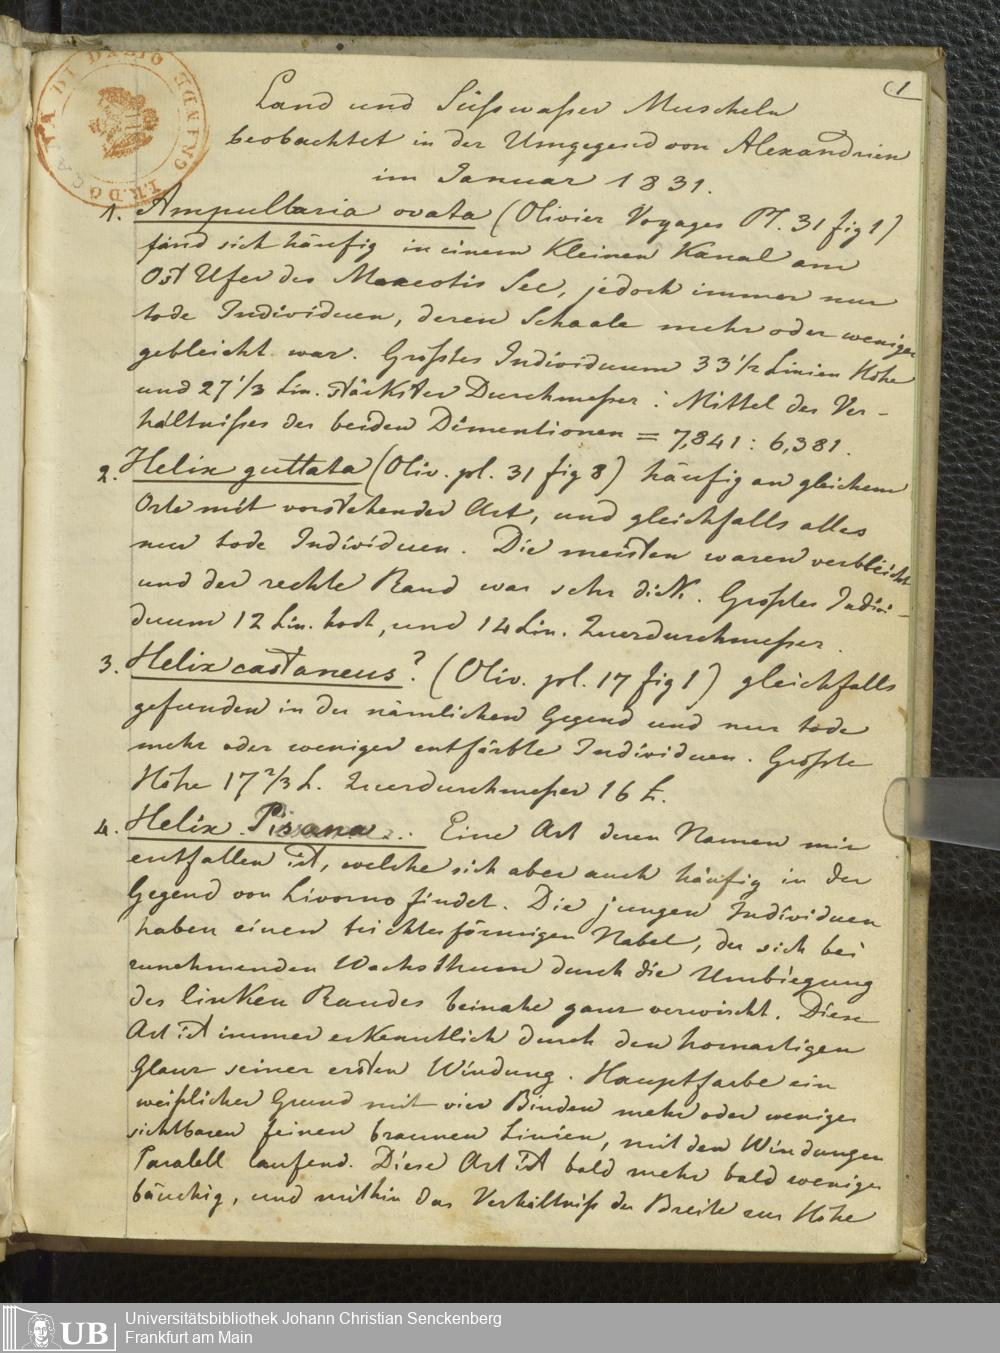 1
Land und Süßwaßer Muscheln
beobachtet in der Umgegend von Alexandrien
im Januar 1831.
1. Ampullaria ovata (Olivier Voyages Pl. 31 fig 1)
fand sich häufig in einem Kleinen Kanal am
Ost Ufer des Mareotis See, jedoch immer nur
tode Individuen, deren Schaale mehr oder weniger
gebleicht war. Größtes Individuum 33 1/2 Linien Höhe
und 27 1/3 Lin. stärkster Durchmeßer: Mittel des Ver-
hältnißes der beiden Dimentionen = 7,841 : 6,381.
2. Helix guttata (Oliv. pl. 31 fig 8) häufig an gleichem
Orte mit vorstehender Art, und gleichfalls alles
nur tode Individuen. Die meisten waren verbleicht
und der rechte Rand war sehr dick. Großtes Indivi-
duum 12 Lin. hoch, und 14 Lin. Querdurchmeßer.
3. Helix castaneus? (Oliv. pl. 17 fig 1) gleichfalls
gefunden in der nämlichen Gegend und nur tode
mehr oder weniger entfärbte Individuen. Größte
Höhe 17 2/3 L. Querdurchmeßer 16 L.
4. Helix Pisana. Eine Art deren Namen mir
entfallen ist, welche sich aber auch häufig in der
Gegend von Livorno findet. Die jungen Individuen
haben einen trichterförmigen Nabel, der sich bei
zunehmenden Wachsthum durch die Umbiegung
des linken Randes beinahe ganz verwischt. Diese
Art ist immer erkenntlich durch den hornartigen
Glanz seiner ersten Windung. Hauptfarbe ein
weißlicher Grund mit vier Binden mehr oder weniger
sichtbaren feinen braunen Linien, mit den Windungen
Paralell laufend. Diese Art ist bald mehr bald weniger
bäuchig, und mithin das Verhältniß der Breite zur Höhe
UB
Universitätsbibliothek Johann Christian Senckenberg
Frankfurt am Main